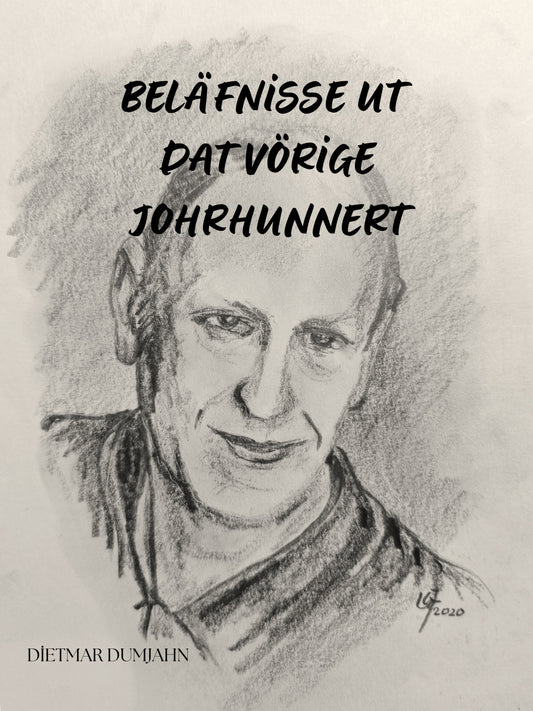 BELÄFNISSE UT
DAT VÖRIGE
JOHRHUNNERT
2020
DIETMAR DUMJAHN